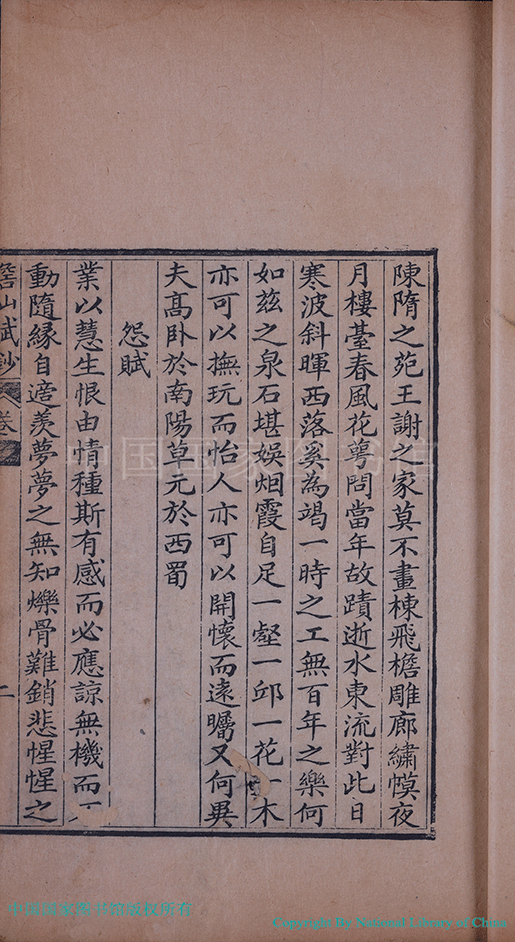 陳隋之苑王謝之家莫不畫棟飛檐雕廊繡幙夜
月樓臺春風花萼問當年故蹟逝水東流對此日
寒波斜暉西落奚為竭一時之工無百年之樂何
如兹之泉石堪娱烟霞自足一壑一邱一花一木
亦可以撫玩而怡人亦可以開懷而遠矚又何異
夫高卧於南陽草元於西蜀
怨賦
業以慧生恨由情種斯有感而必應諒無機而
動隨緣自適羨夢夢之無知爍骨難銷悲惺惺之
山賦鈔 卷 二
中国国家图书馆
中国国家图书馆版权所有
Copyright By National Library of China